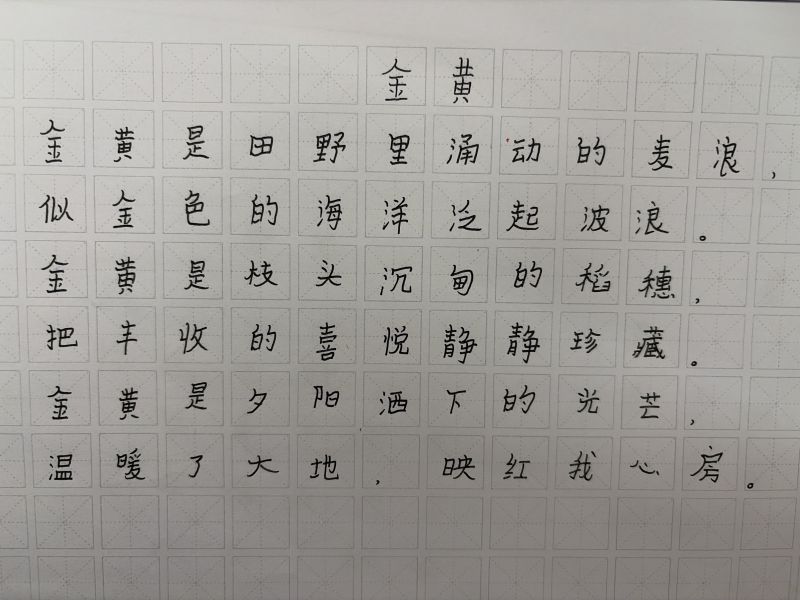 金黄
金黄是田野里涌动的麦浪，
似金色的海洋泛起波浪。
金黄是枝头沉甸的稻穗，
把丰收的喜悦静静珍藏。
金黄是夕阳洒下的光芒，
温暖了大地，映红我心房。